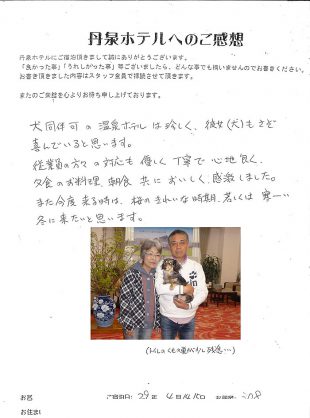 丹泉ホテルへのご感想
丹泉ホテルにご宿泊頂きまして誠にありがとうございます。
「良かった事」「うれしかった事」等ございましたら、どんな事でも構いませんのでお書きください。
お書き頂きました内容はスタッフ全員で拝読させて頂きます。
またのご来館を心よりお待ち申し上げております。
犬同伴可の温泉ホテルは珍しく、彼女(犬)もさぞ
喜んでいると思います。
従業員の方々の対応も優しく丁寧で心地良く、
夕食のお料理、朝食共においしく、感激しました。
また今度来る時は、梅のきれいな時期、若しくは寒ーい
冬に来たいと思います。
残念…)
お名
ご宿泊日 29年 4月
お部屋
お住まい